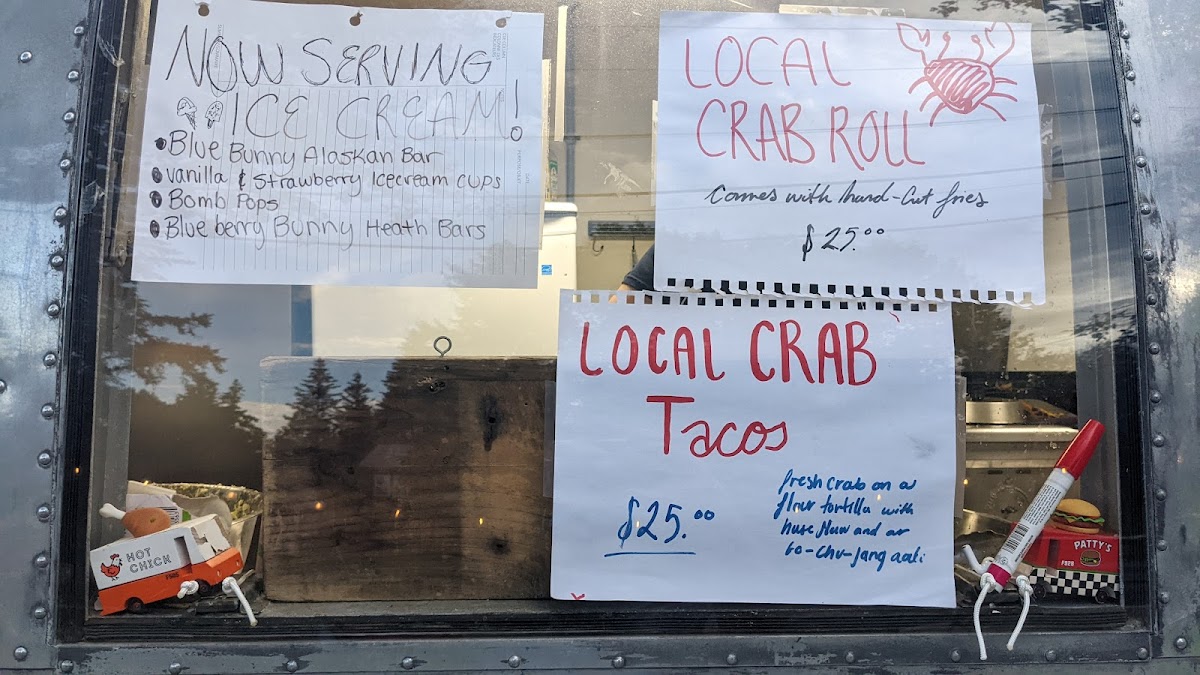 NOW SERVING
ICE CREAM!
Blue Bunny Alaskan Bar
vanilla & Strawberry Icecream cups
Bomb Pops
Blueberry Bunny Heath Bars
LOCAL
CRAB ROLL
Comes with hand-Cut fries
$25.00
LOCAL CRAB
Tacos
$25.00
fresh crab on a
flour tortilla with
house slaw and a
Go-chu-jang aoli
HOT
CHICK
PATTY'S